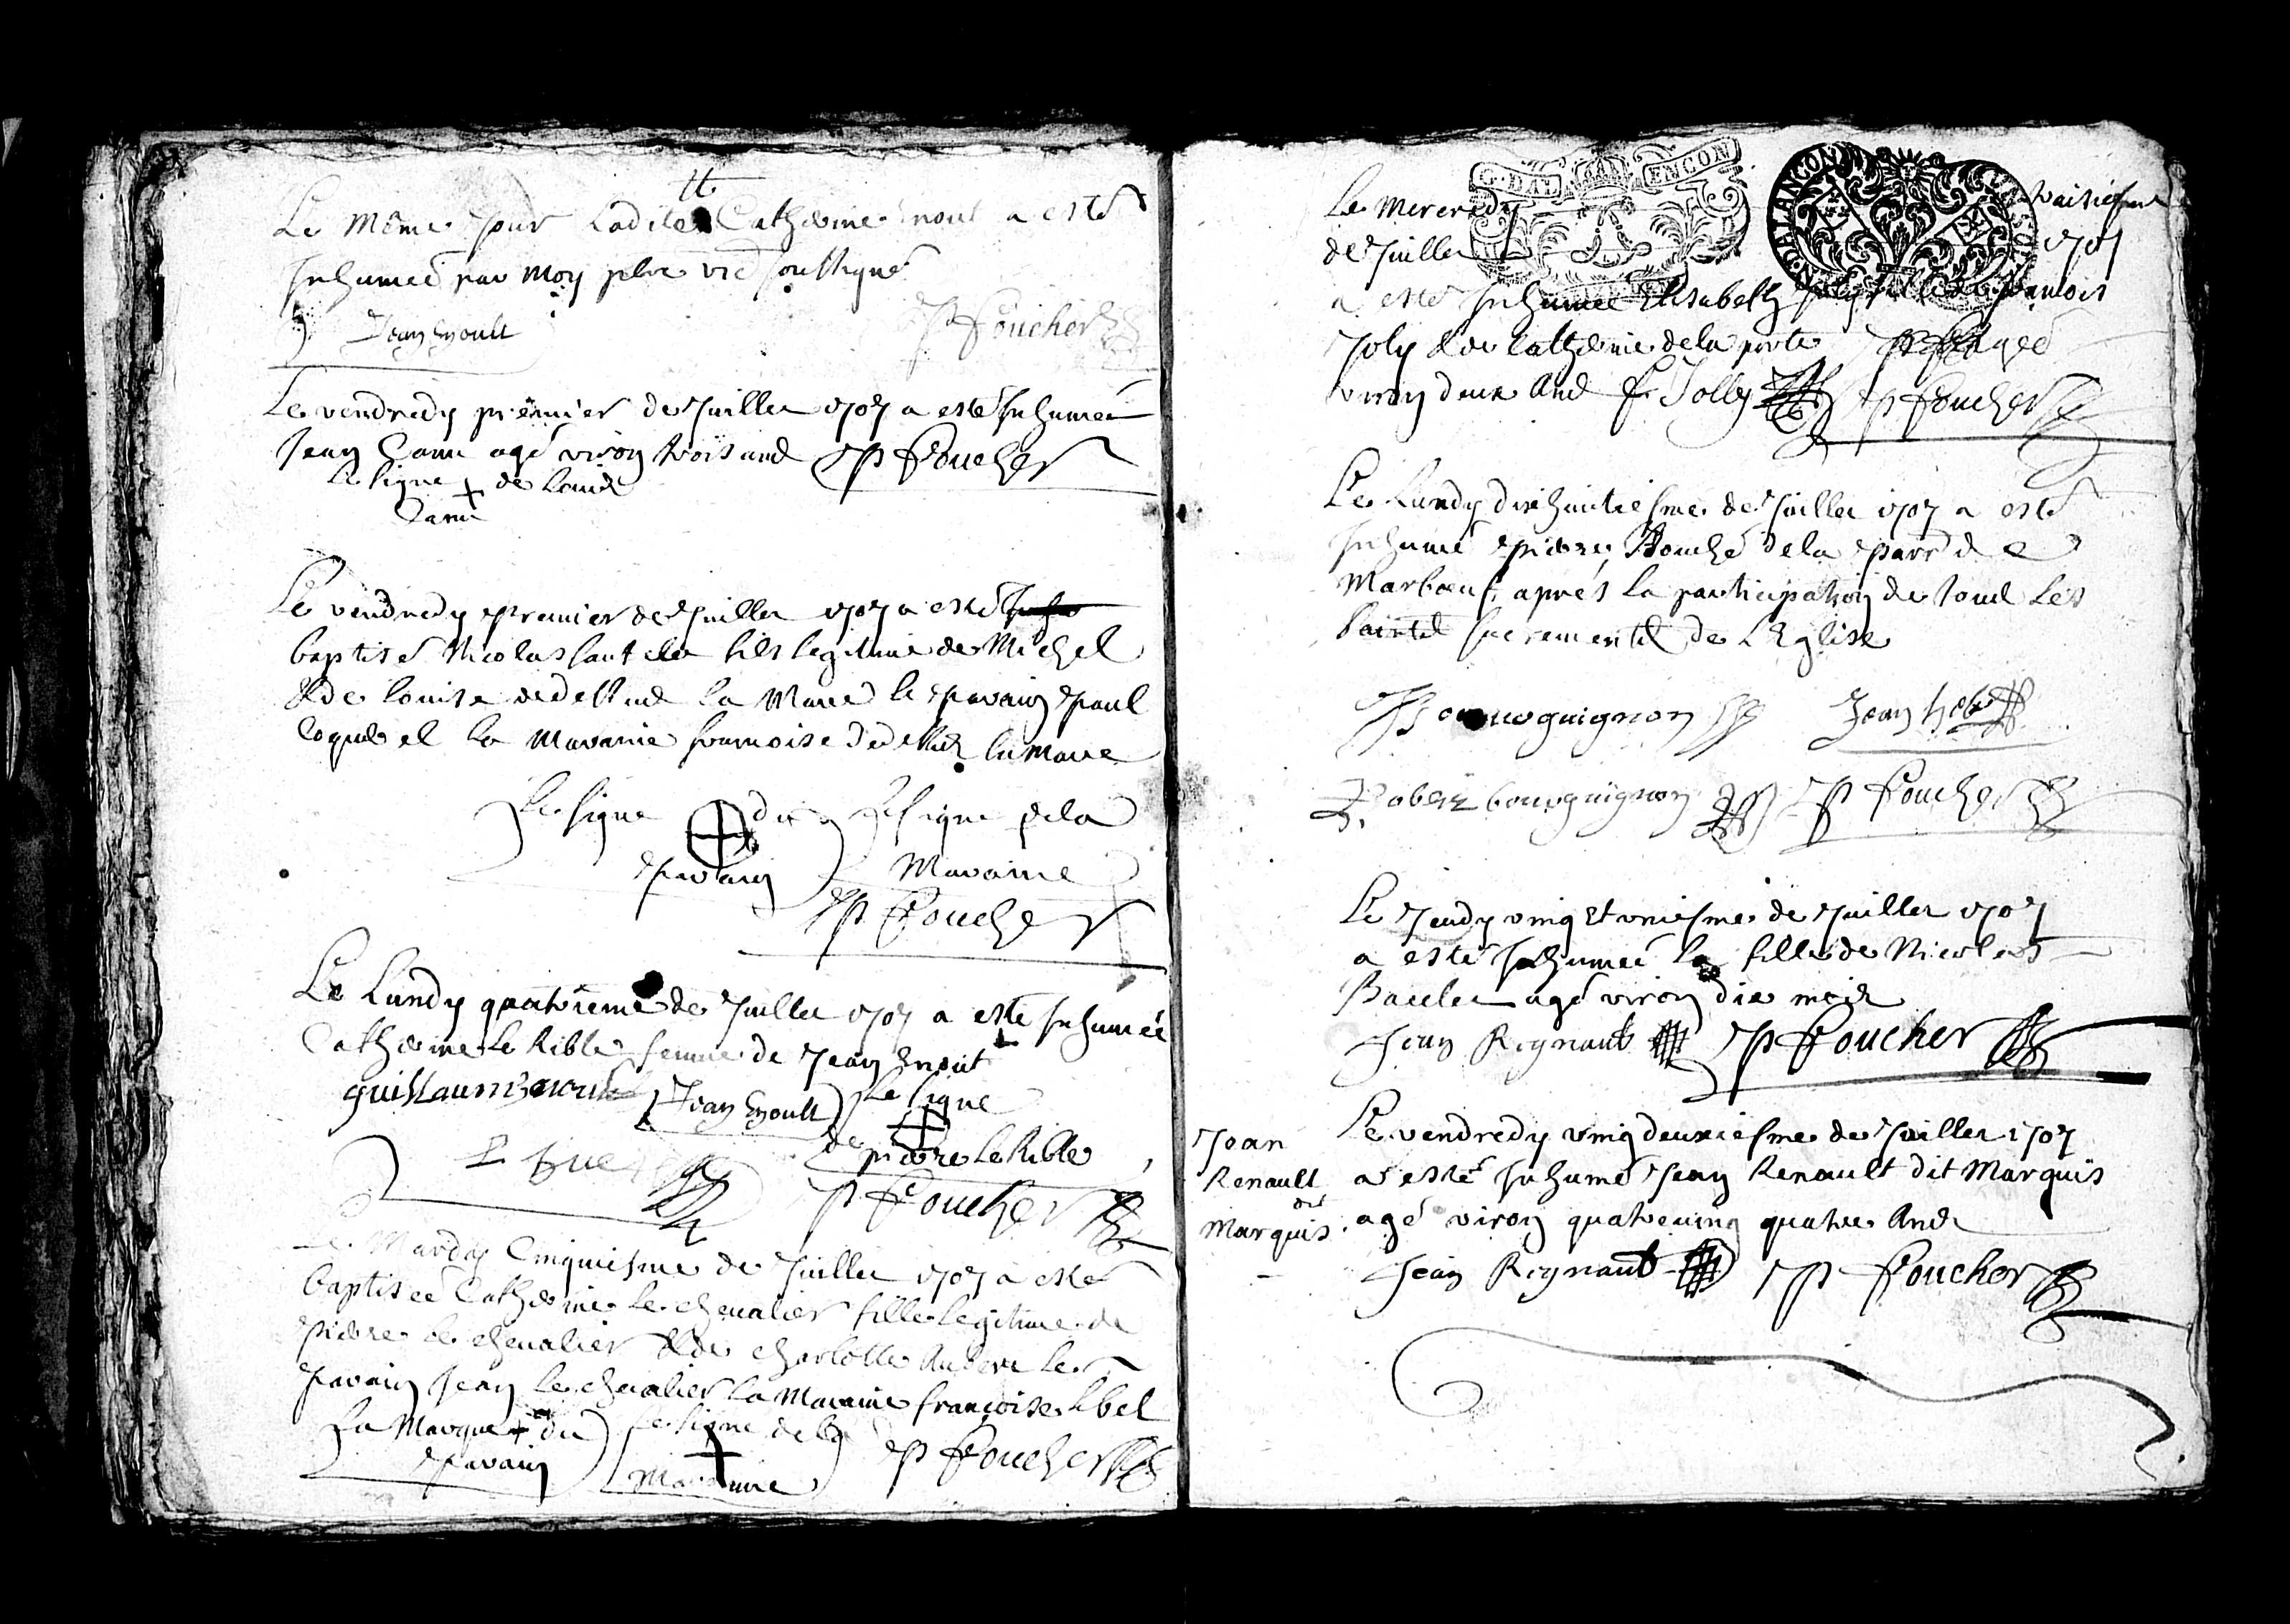 Le Même jour ladite Catherine Enoul a esté
Inhumée par moy pbre vic soussigné
Jean Enoult P Foucher
Le vendredy premier de Juillet 1707 a esté Inhumée
Jean Came agé viron trois and P Foucher
le signe de Louis
Came
Le vendredy premier de Juillet 1707 a esté
baptisé Nicolas fils legitime de Michel
& de louise la Mare le parain Paul
et la Maraine la Mare
Le signe du Le signe de la
parain Maraine
P Foucher
Le Lundy quatrieme de Juillet 1707 a esté Inhumée
Catherine Le Rible femme de Jean Enoult
guillaum Enoult Jean Enoult Le signe
de pierre Le Rible
P Foucher
Le Mardy Cinquiesme de Juillet 1707 a esté
baptisée Catherine Le chevalier fille legitime de
pierre le chevalier & de charlotte le
parain Jean Le chevalier la Maraine françoise
La Marque du Le signe de la P Foucher
parain Maraine
G. DAL EMCON
Le Mercredy
de Juillet 1707
a esté Inhumée Elisabeth fille de
Joly & de Catherine de la porte agée
viron deux And F. Jolly P Foucher
Le Lundy dixhuitiesme de Juillet 1707 a esté
Inhumé pierre de la parr de
Marbœuf, aprés la participation de toud Les
Saintd Sacrementd de L'Eglise
Bourguignon Jean
Robert bourguignon P Foucher
Le Jeudy vingt et uniesme de Juillet 1707
a esté Inhumée la fille de Nicolas
agé viron dix mois
Jean Regnault P Foucher
Jean
Renault
dit
Marquis
Le vendredy vingdeuxiesme de Juillet 1707
a esté Inhumé Jean Renault dit Marquis
agé viron quatreving quatre And
Jean Regnault P Foucher